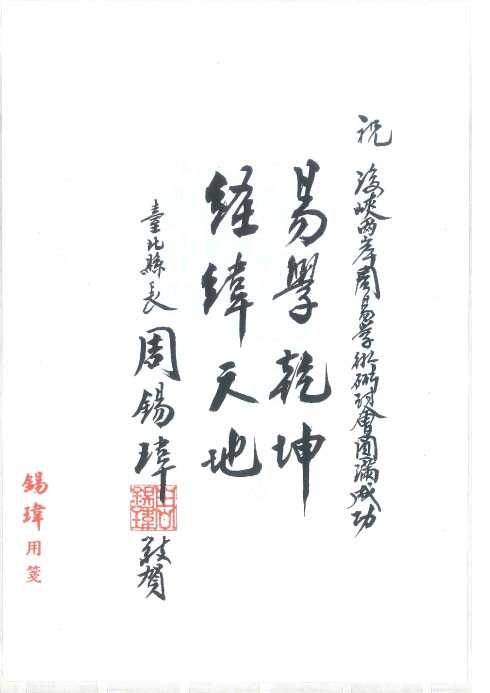 祝 海峽兩岸周易學術研討會圓滿成功
易學乾坤
經緯天地
臺北縣長 周錫瑋 敬賀
錫瑋用箋